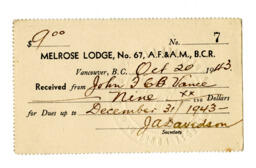 $9.00 No. 7
MELROSE LODGE, No. 67, A.F. & A.M., B.C.R.
Vancouver, B.C. Oct 20 1943
Received from John F CB Vance
Nine xx/100 Dollars
for Dues up to December 31/1943-
JADavidson
Secretary